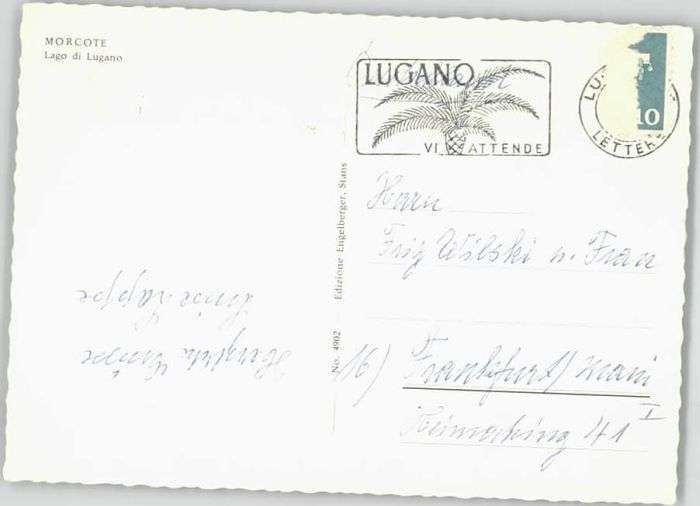 MORCOTE
Lago di Lugano
LUGANO
VI ATTENDE
LU
LETTER
10
Edizione Engelberger, Stans
No. 4902
Herrn
Wilski u. Frau
(16) Frankfurt/Main
41 I
Herzliche Grüsse